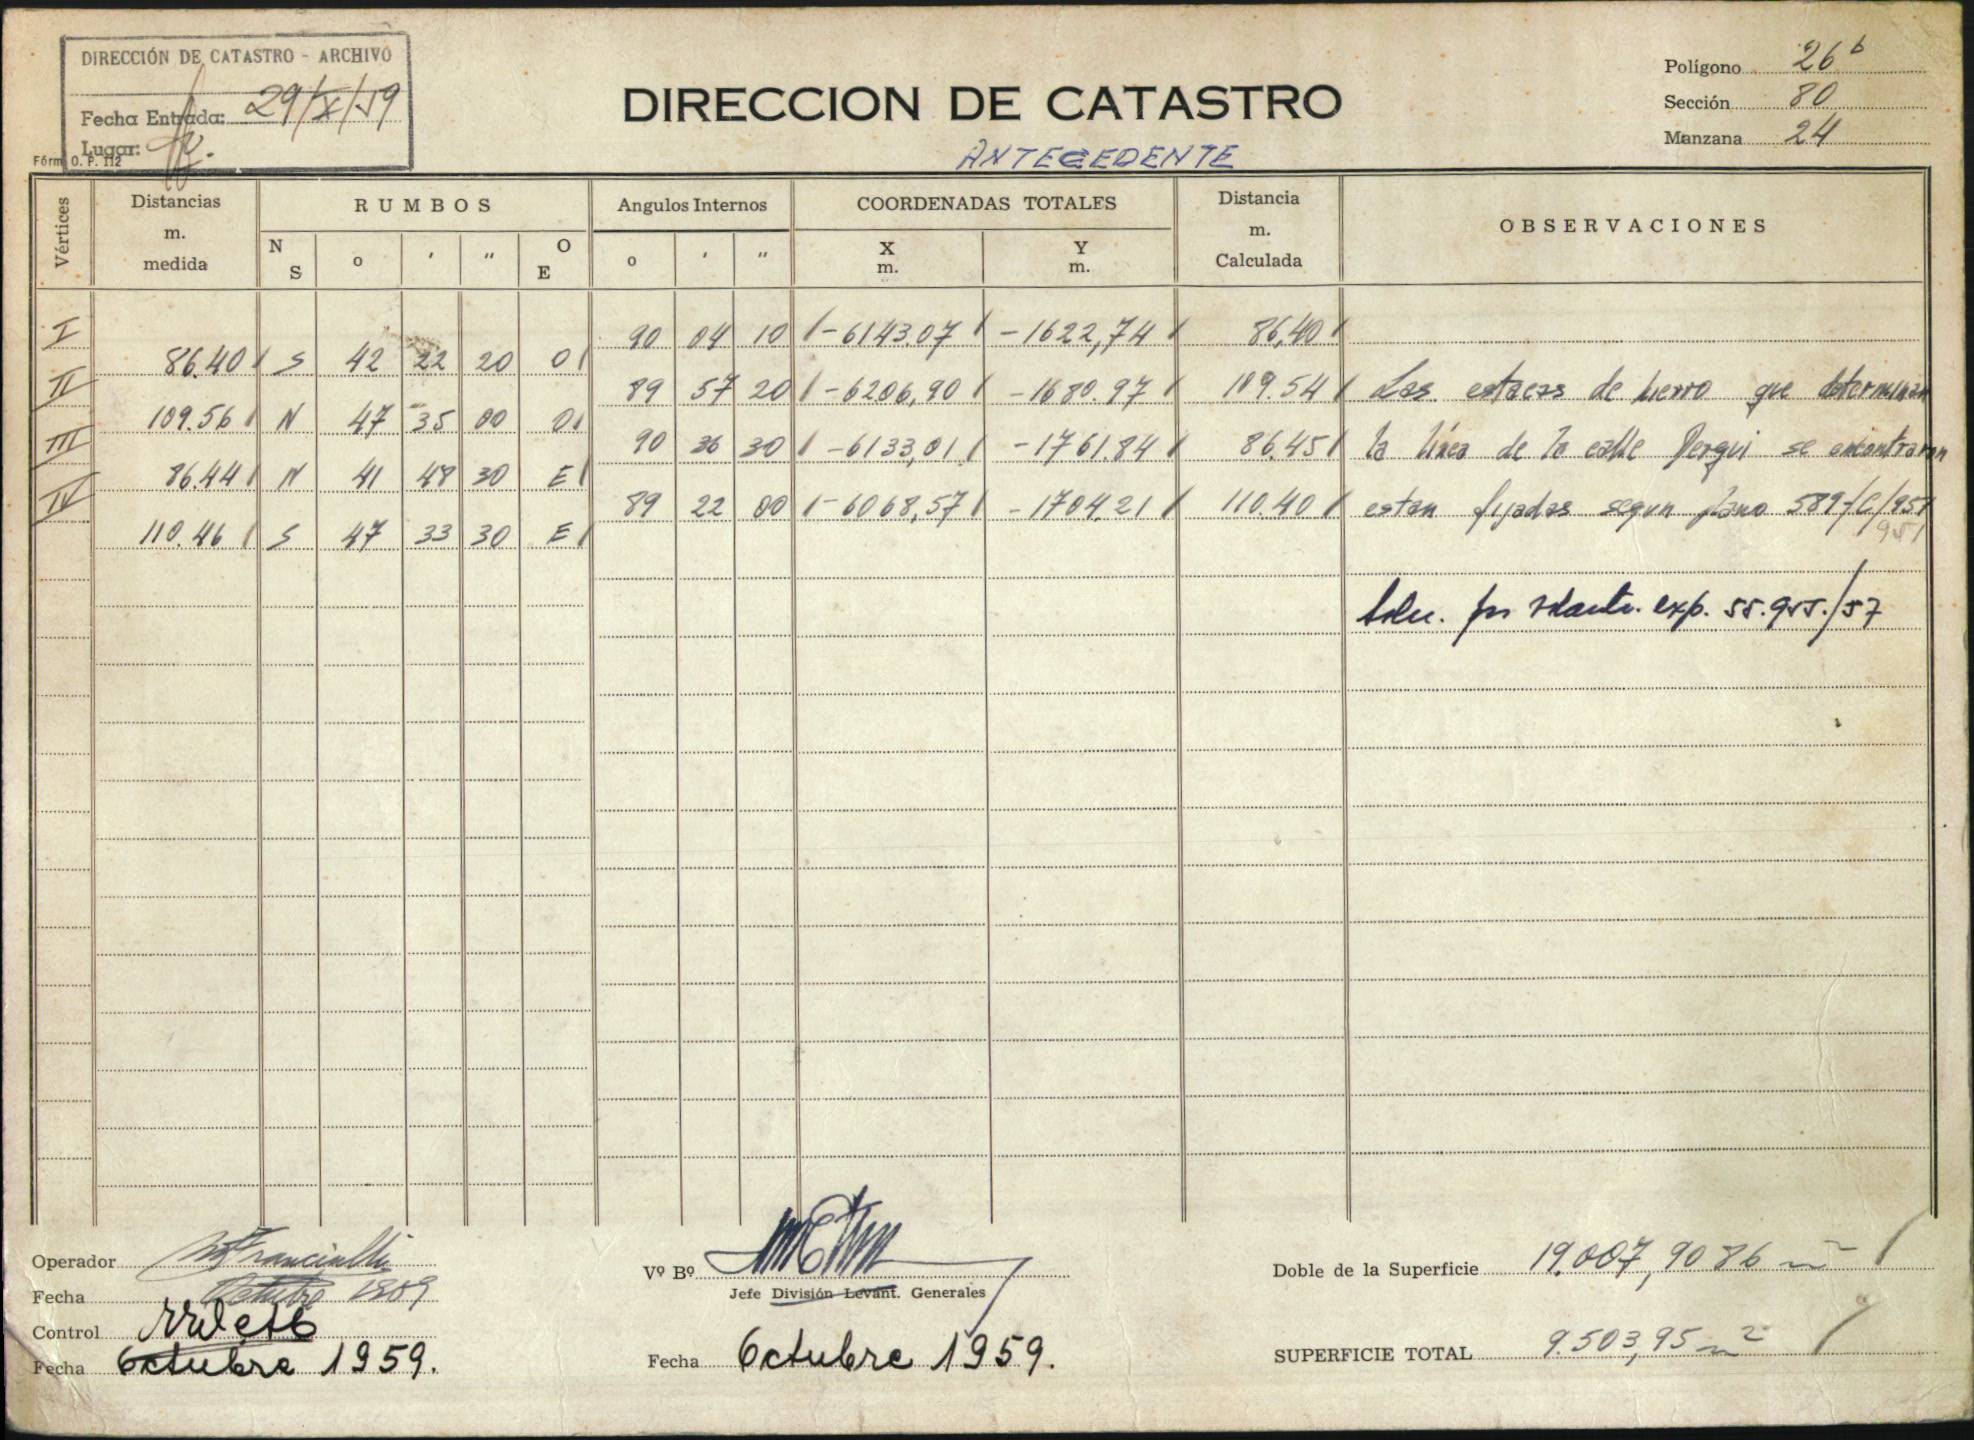 DIRECCIÓN DE CATASTRO - ARCHIVO
Fecha Entrada: 29/X/59
Lugar:
Fórm. O. P. 112
DIRECCION DE CATASTRO
ANTECEDENTE
Polígono 26 b
Sección 80
Manzana 24
Vértices
Distancias m. medida
RUMBOS
N S o ' " O E
Angulos Internos
o ' "
COORDENADAS TOTALES
X m. Y m.
Distancia m. Calculada
OBSERVACIONES
I 90 04 10 -6143.07 -1622,74 86,40
86.40 S 42 22 20 O
II 89 57 20 -6206,90 -1680.97 109.54 Las estacas de hierro que determinan
109.56 N 47 35 00 O
III 90 36 30 -6133,01 -1761.84 86.45 la línea de la calle se encontraron
86.44 N 41 48 30 E
IV 89 22 00 -6068,57 -1704.21 110.40 estan fijadas segun plano 589-C/951
951
110.46 S 47 33 30 E
exp. 55.955./57
Operador
Fecha Octubre 1959
Control
Fecha Octubre 1959.
Vº Bº
Jefe División Levant. Generales
Fecha Octubre 1959.
Doble de la Superficie 19.007,9086 m²
SUPERFICIE TOTAL 9.503,95 m²